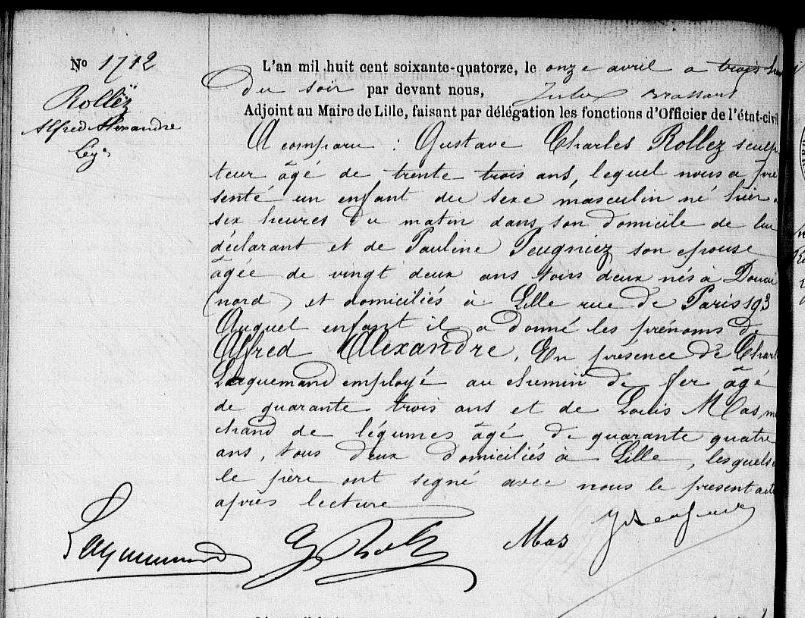 No 1712
Rollez
Alfred Alexandre
Leg.
L'an mil huit cent soixante-quatorze, le onze avril a trois h
du soir par devant nous, Jules Brassart
Adjoint au Maire de Lille, faisant par délégation les fonctions d'Officier de l'état-civil
A comparu : Gustave Charles Rollez sculp
teur âgé de trente trois ans, lequel nous a pré
senté un enfant du sexe masculin né hier
six heures du matin dans son domicile de lui
déclarant et de Pauline Peugniez son epouse
âgée de vingt deux ans tous deux nés à Douai
(nord) et domiciliés à Lille rue de Paris 193
Auquel enfant il a donné les prénoms d
Alfred Alexandre. En présence de Charl
Lacquemand employé au chemin de fer âgé
de quarante trois ans et de Louis Mas, m
chand de légumes âgé de quarante quatre
ans, tous deux domiciliés à Lille, lesquels
le père ont signé avec nous le présent acte
après lecture
Lacquemand G Rollez Mas